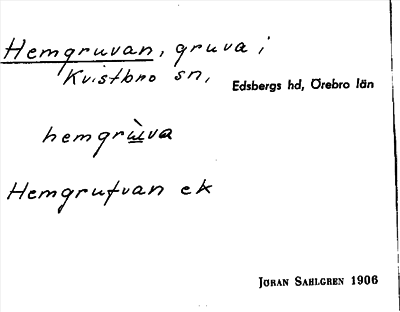 Hemgruvan, gruva i
Kvistbro sn,
Edsbergs hd, Örebro län
hemgrùva
Hemgrufvan ek
Jöran Sahlgren 1906